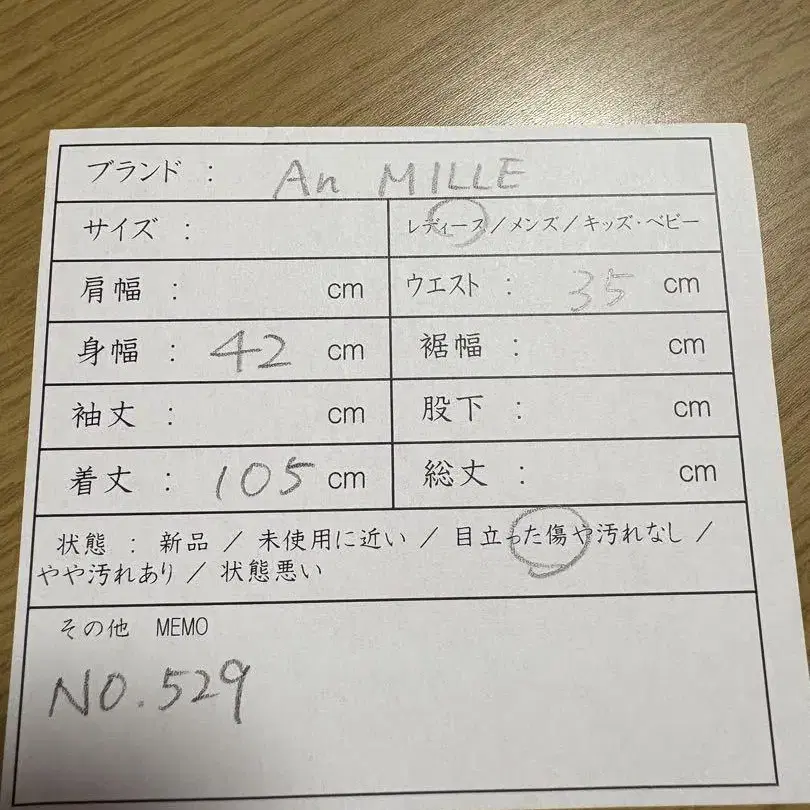 ブランド : An MILLE
サイズ : レディース / メンズ / キッズ・ベビー
肩幅 : cm ウエスト : 35 cm
身幅 : 42 cm 裾幅 : cm
袖丈 : cm 股下 : cm
着丈 : 105 cm 総丈 : cm
状態 : 新品 / 未使用に近い / 目立った傷や汚れなし /
やや汚れあり / 状態悪い
その他 MEMO
NO.529